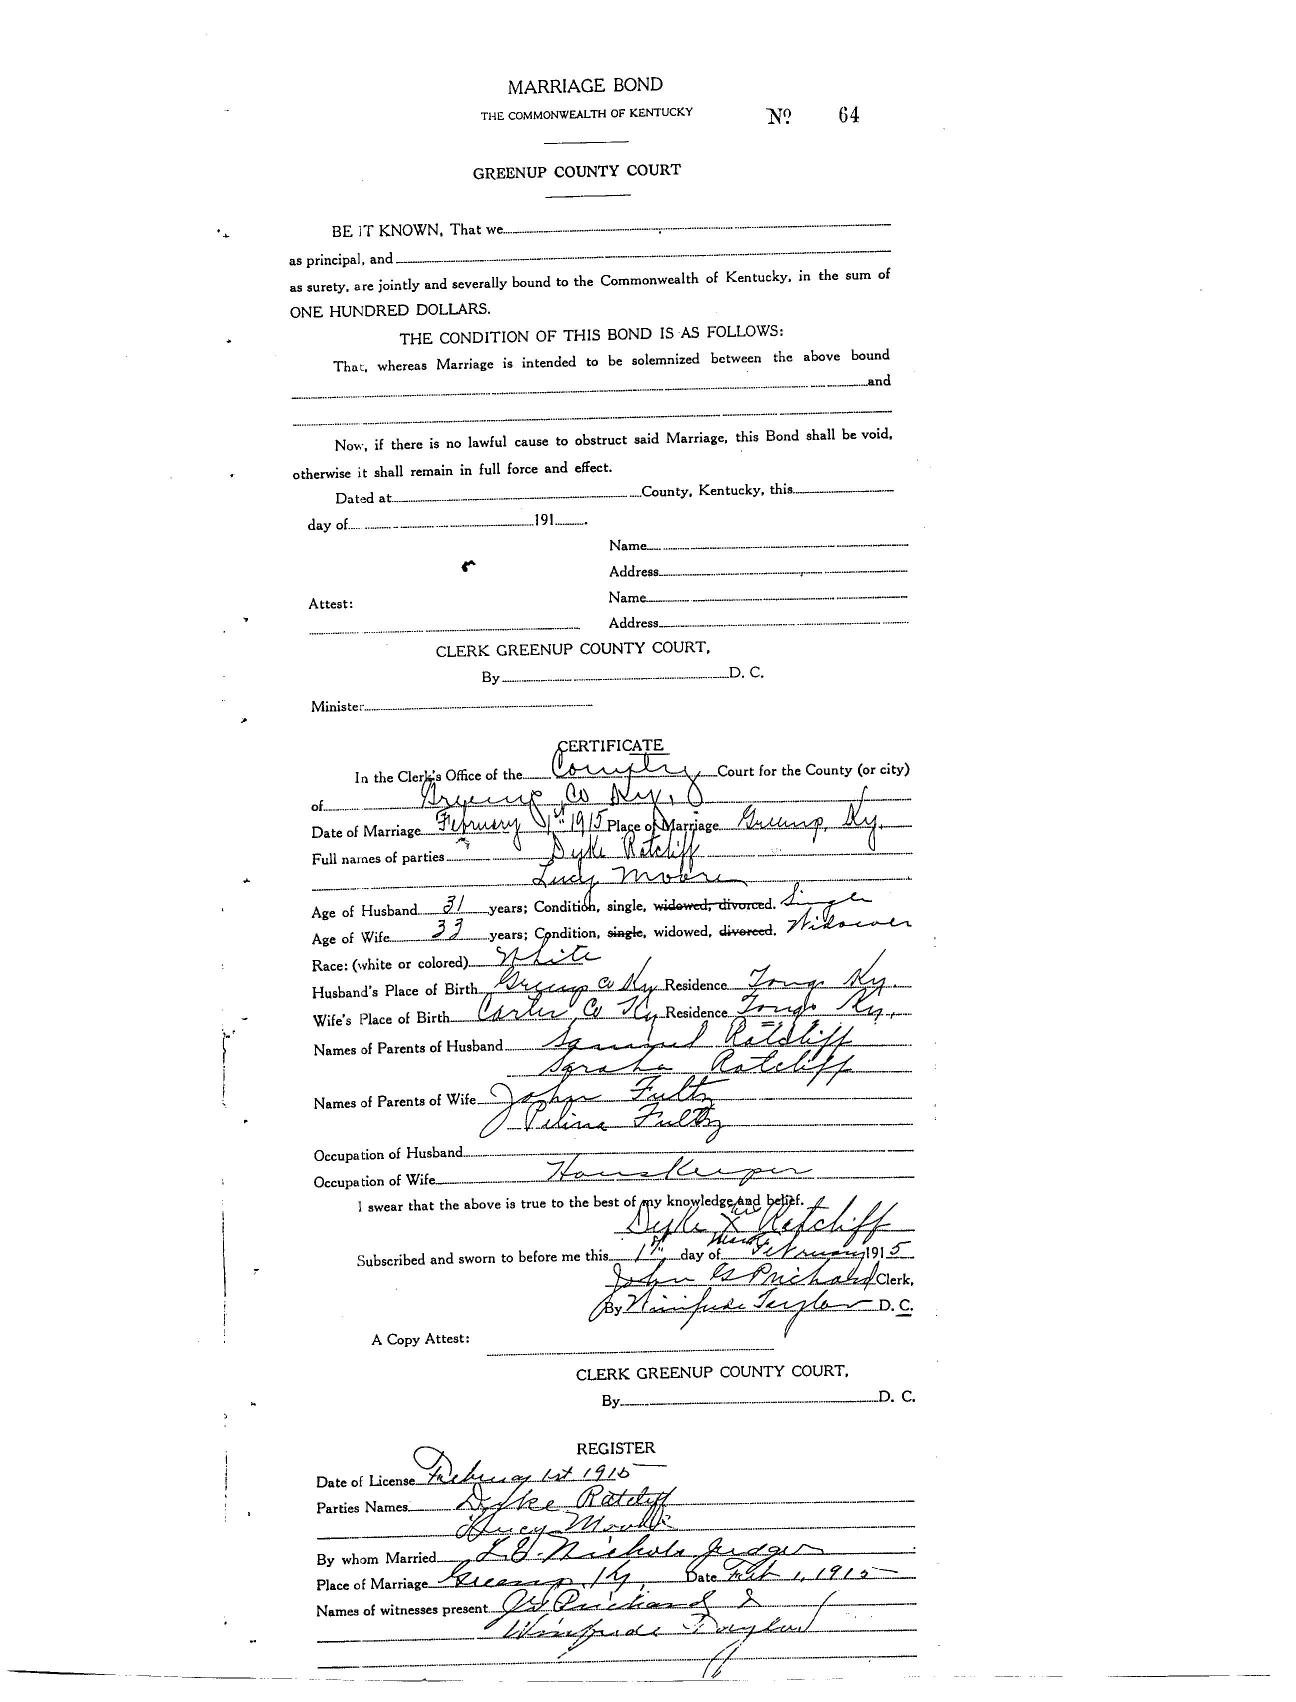 MARRIAGE BOND
THE COMMONWEALTH OF KENTUCKY
Nº 64
GREENUP COUNTY COURT
BE IT KNOWN, That we
as principal, and
as surety, are jointly and severally bound to the Commonwealth of Kentucky, in the sum of
ONE HUNDRED DOLLARS.
THE CONDITION OF THIS BOND IS AS FOLLOWS:
That, whereas Marriage is intended to be solemnized between the above bound
and
Now, if there is no lawful cause to obstruct said Marriage, this Bond shall be void,
otherwise it shall remain in full force and effect.
Dated at County, Kentucky, this
day of 191 .
Name
Address
Attest: Name
Address
CLERK GREENUP COUNTY COURT,
By D. C.
Minister
CERTIFICATE
In the Clerk's Office of the County Court for the County (or city)
of Greenup Co Ky,
Date of Marriage February 1st 1915 Place of Marriage Greenup, Ky.
Full names of parties Dyke Ratcliff
Lucy Moore
Age of Husband 31 years; Condition, single, widowed, divorced. Single
Age of Wife 33 years; Condition, single, widowed, divorced. Widower
Race: (white or colored) White
Husband's Place of Birth Greenup Co Ky Residence Tongs Ky.
Wife's Place of Birth Carter Co Ky Residence Tongs Ky.
Names of Parents of Husband Samuel Ratcliff
Ratcliff
Names of Parents of Wife John Fultz
Pelina Fultz
Occupation of Husband
Occupation of Wife Housekeeper
I swear that the above is true to the best of my knowledge and belief.
Dyke X Ratcliff
mark
Subscribed and sworn to before me this 1st day of February 1915
John G Prichard Clerk,
By Winifrede Taylor D. C.
A Copy Attest:
CLERK GREENUP COUNTY COURT,
By D. C.
REGISTER
Date of License February 1st 1915
Parties Names Dyke Ratcliff
Lucy Moore
By whom Married Nichols Judge
Place of Marriage Greenup, Ky, Date Feb 1, 1915
Names of witnesses present Prichard &
Winifrede Taylor